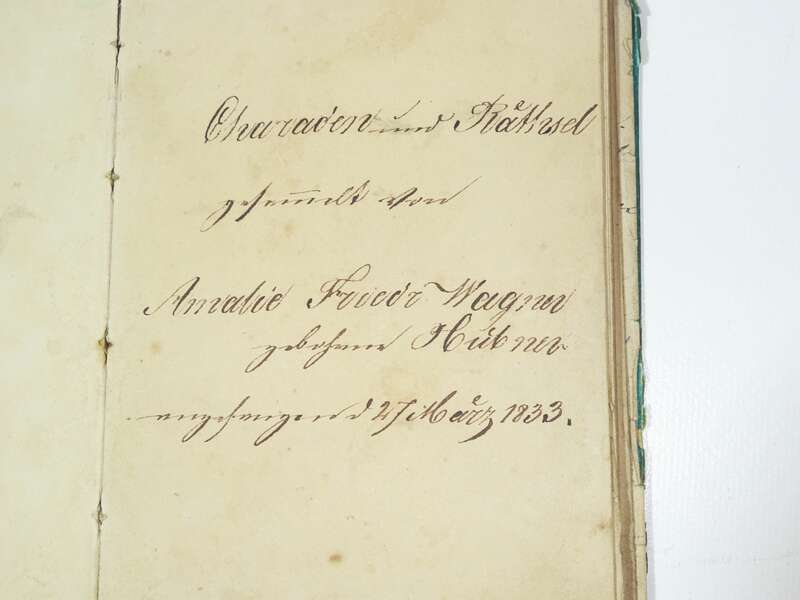 Charaden und Räthsel
gesammelt von
Amalie Friedr Wagner
gebohrne Hübner
angefangen d 27 März 1833.